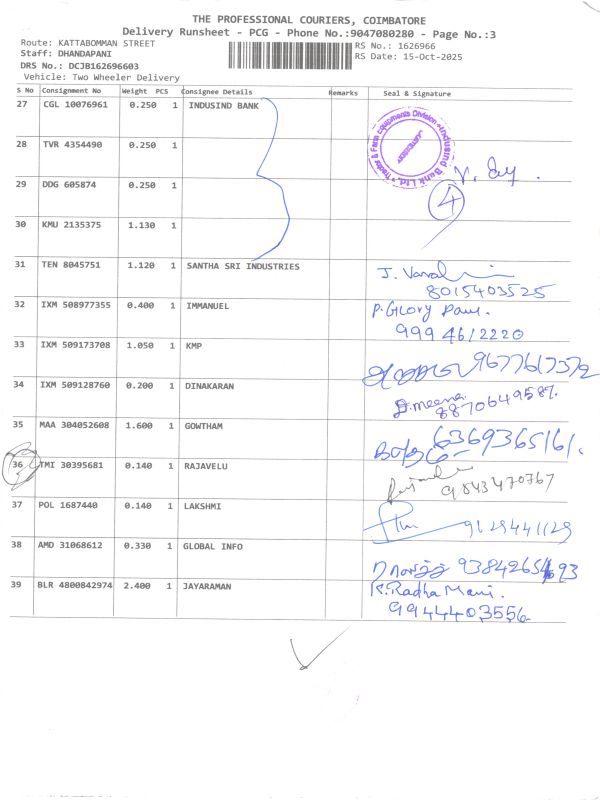 THE PROFESSIONAL COURIERS, COIMBATORE
Delivery Runsheet - PCG - Phone No.:9047080280 - Page No.:3
Route: KATTABOMMAN STREET RS No.: 1626966
Staff: DHANDAPANI RS Date: 15-Oct-2025
DRS No.: DCJB162696603
Vehicle: Two Wheeler Delivery
S No Consignment No Weight PCS Consignee Details Remarks Seal & Signature
27 CGL 10076961 0.250 1 INDUSIND BANK
Indusind Bank Ltd. Tractor & Farm Equipments Division
28 TVR 4354490 0.250 1
29 DDG 605874 0.250 1
4
30 KMU 2135375 1.130 1
31 TEN 8045751 1.120 1 SANTHA SRI INDUSTRIES
8015403525
32 IXM 508977355 0.400 1 IMMANUEL P. Glory
999 4612220
33 IXM 509173708 1.050 1 KMP 9677617372
34 IXM 509128760 0.200 1 DINAKARAN D.meena
8870649587.
35 MAA 304052608 1.600 1 GOWTHAM 6369365161.
36 TMI 30395681 0.140 1 RAJAVELU
9843470767
37 POL 1687440 0.140 1 LAKSHMI 9629441129
38 AMD 31068612 0.330 1 GLOBAL INFO
39 BLR 4800842974 2.400 1 JAYARAMAN K.Radha Mani.
9944403556